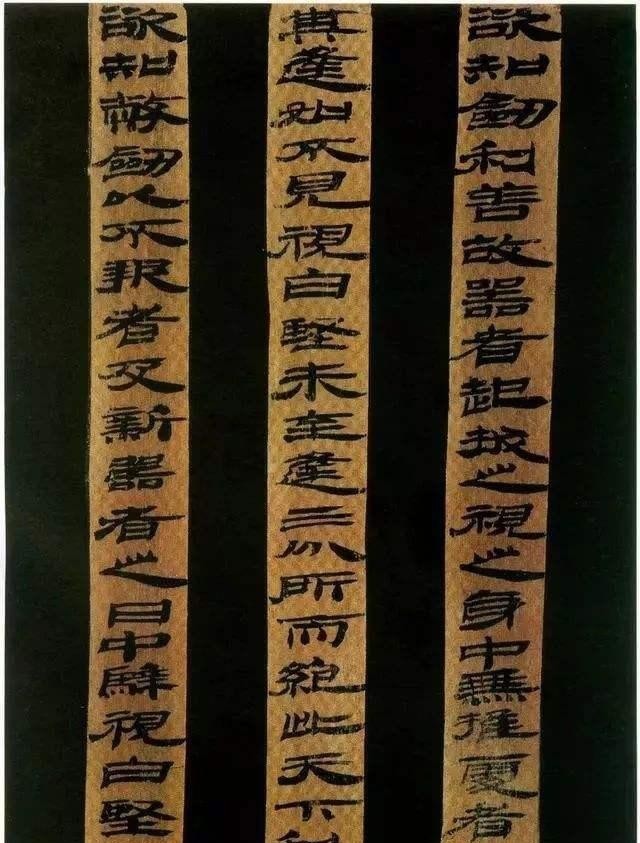 欲知劒利善故器者起拔之視之身中無推更者
其逢如不見視白堅未至逢三分所而絕此天下利
欲知幣劒以不報者及新器者之日中騂視白堅